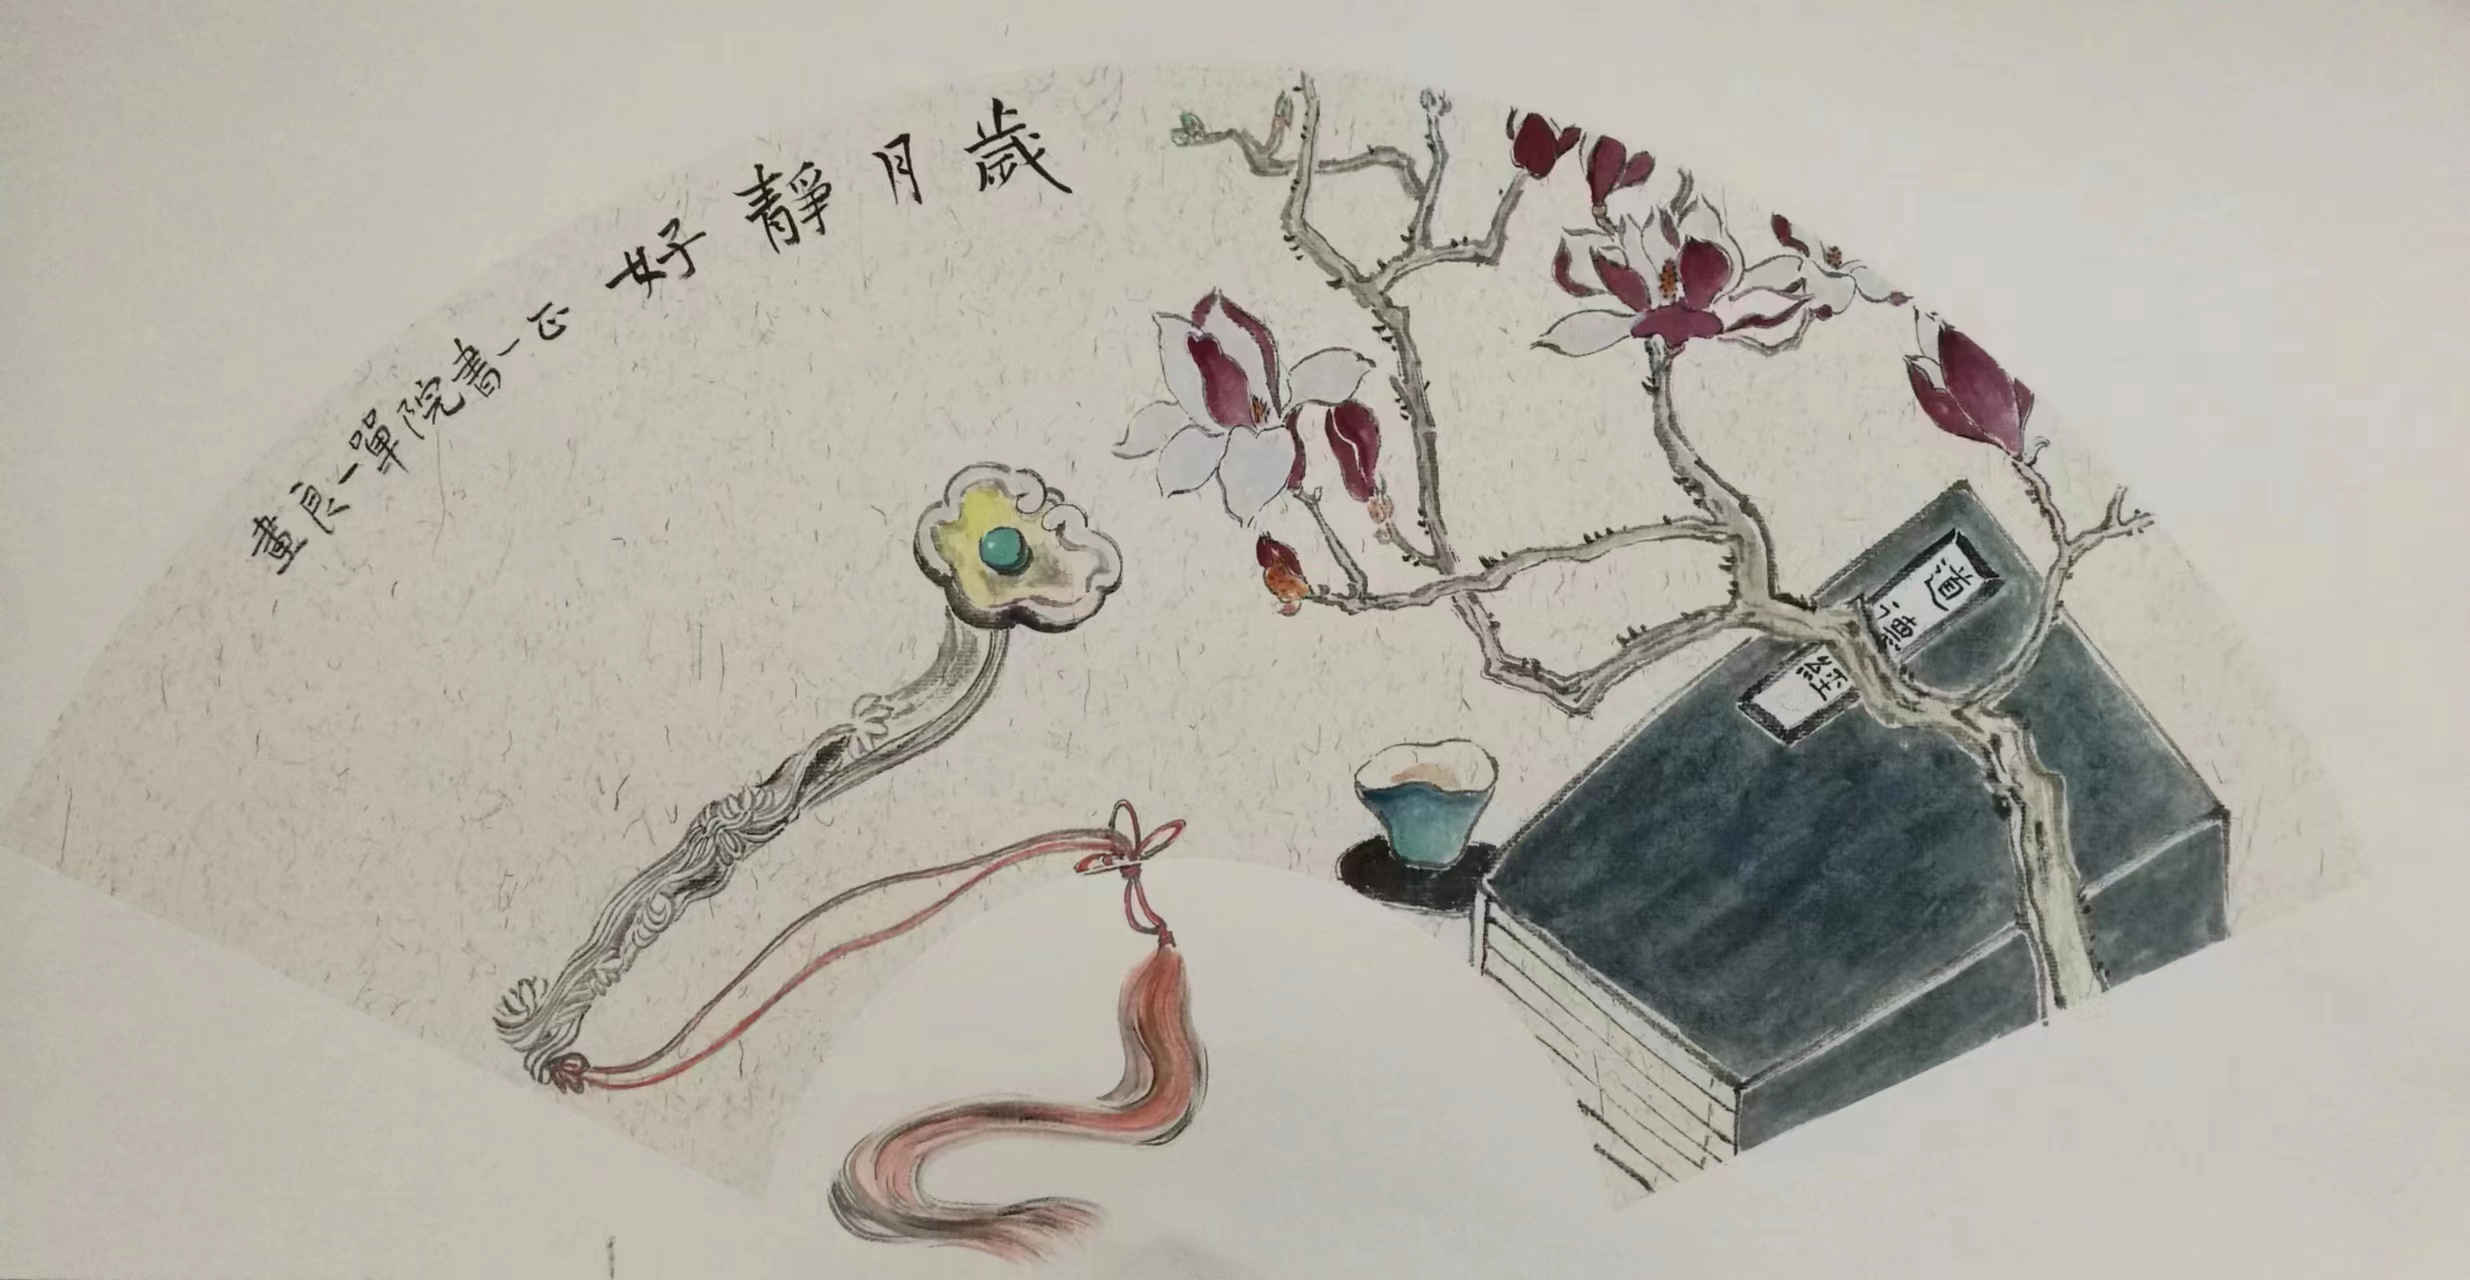 歲月靜好
正一書院單一良畫
道德經